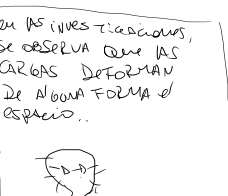 en las investigaciones,
se observa que las
cargas deforman
de alguna forma el
espacio..